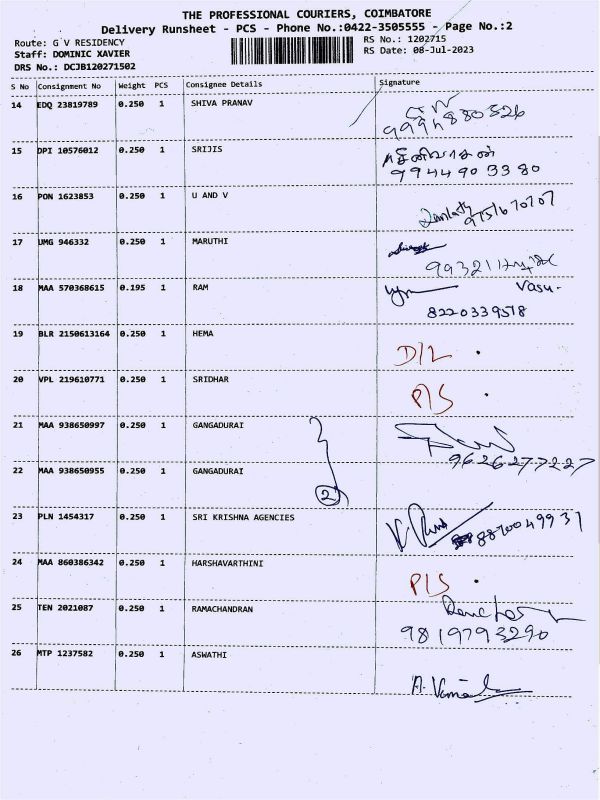 THE PROFESSIONAL COURIERS, COIMBATORE
Delivery Runsheet - PCS - Phone No.:0422-3505555 - Page No.:2
Route: G V RESIDENCY
RS No.: 1202715
Staff: DOMINIC XAVIER
RS Date: 08-Jul-2023
DRS No.: DCJB120271502
S No Consignment No Weight PCS Consignee Details Signature
14 EDQ 23819789 0.250 1 SHIVA PRANAV
9994880526
15 DPI 10576012 0.250 1 SRIJIS
சீனிவாசன்
9944903380
16 PON 1623853 0.250 1 U AND V
9751670707
17 UMG 946332 0.250 1 MARUTHI
18 MAA 570368615 0.195 1 RAM
Vasu.
8220339518
19 BLR 2150613164 0.250 1 HEMA
D/L .
20 VPL 219610771 0.250 1 SRIDHAR
P/S .
21 MAA 938650997 0.250 1 GANGADURAI
9626277227
22 MAA 938650955 0.250 1 GANGADURAI
2
23 PLN 1454317 0.250 1 SRI KRISHNA AGENCIES
8870049937
24 MAA 860386342 0.250 1 HARSHAVARTHINI
P/S .
25 TEN 2021087 0.250 1 RAMACHANDRAN
9819793290
26 MTP 1237582 0.250 1 ASWATHI